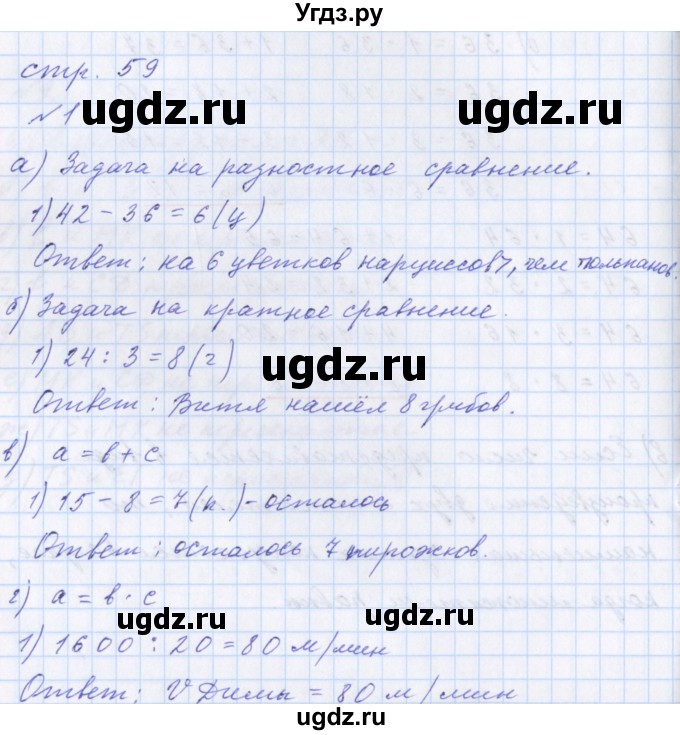 Угдз.ру
стр. 59
№1
ugdz.ru ugdz.ru
а) Задача на разностное сравнение.
1) 42 - 36 = 6 (ц)
Ответ: на 6 цветков нарциссов >, чем тюльпанов.
б) Задача на кратное сравнение.
1) 24 : 3 = 8 (г)
ugdz.ru
Ответ: Витя нашёл 8 грибов.
в) a = b + c
ugdz.ru
1) 15 - 8 = 7 (п.) - осталось
Ответ: осталось 7 пирожков.
г) a = b · c
ugdz.ru ugdz.ru
1) 1600 : 20 = 80 м/мин
Ответ: V Димы = 80 м/мин
ugdz.ru